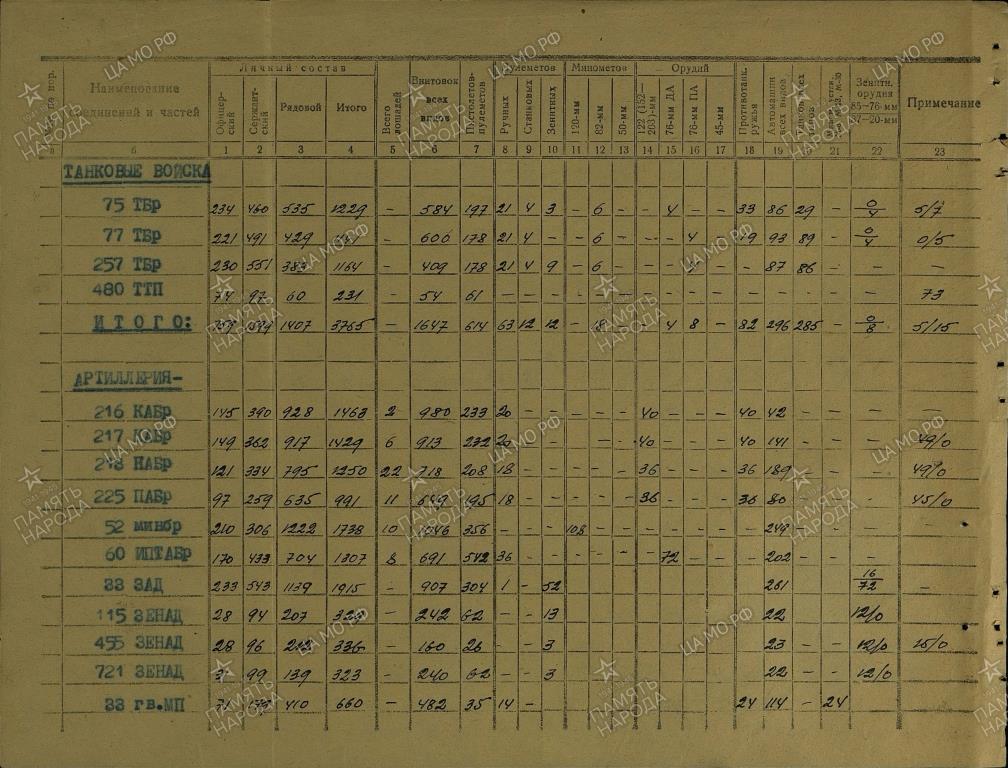 Наименование соединений и частей | Личный состав | Всего лошадей | Винтовок всех видов | Пистолетов-пулеметов | Пулеметов | Минометов | Орудий | Противотанк. ружья | Автомашин всех видов | Зенитн. орудия 85—76-мм 37—20-мм | Примечание
Офицерский | Сержантский | Рядовой | Итого | Ручных | Станковых | Зенитных | 120-мм | 82-мм | 50-мм | 122 (152—203)-мм | 76-мм ДА | 76-мм ПА | 45-мм
б | 1 | 2 | 3 | 4 | 5 | 6 | 7 | 8 | 9 | 10 | 11 | 12 | 13 | 14 | 15 | 16 | 17 | 18 | 19 | 21 | 22 | 23
ТАНКОВЫЕ ВОЙСКА
75 ТБр 234 460 535 1229 - 584 197 21 4 3 - 6 - - 4 - - 33 86 29 - 0/4 5/7
77 ТБр 221 491 429 - 600 178 21 4 - - 6 - - - 4 - 93 89 - 0/4 0/5
257 ТБр 230 551 383 1164 - 409 178 21 4 9 - 6 - - - - - 87 86 - - -
480 ТТП 74 97 60 231 - 54 61 - - - - - - - - - - - - 73
ИТОГО: 1599 1407 3765 - 1647 614 63 12 12 - 18 - - 4 8 - 82 296 285 - 0/8 5/15
АРТИЛЛЕРИЯ-
216 КАБр 145 390 928 1463 2 980 233 20 - - - - - 40 - - - 40 42 - - - -
217 КАБр 149 362 917 1429 6 913 232 20 - - - - 40 - - - 40 141 - - - 49/0
НАБр 121 334 795 1250 22 718 208 18 - - - - - 36 - - - 36 189 - - - 49/0
225 ПАБр 97 259 635 991 11 649 195 18 - - - - - 36 - - - 36 80 - - - 45/0
52 минбр 210 306 1222 1738 10 1046 356 - - - 108 - - - - - - - 249 - - -
60 ИПТАБр 170 433 704 1307 8 691 512 36 - - - - - - 72 - - 202 - - -
33 ЗАД 233 543 1139 1915 - 907 304 1 - 52 261 16/72 -
115 ЗЕНАД 28 94 207 329 - 242 62 - - 13 22 12/0
455 ЗЕНАД 28 96 212 336 - 160 26 - - 3 23 - 12/0 15/0
721 ЗЕНАД 99 139 323 - 240 62 - - 3 22 - 12/0
33 гв.МП 410 660 - 482 35 14 - 24 114 - 24
ПАМЯТЬ НАРОДА
ЦАМО.РФ